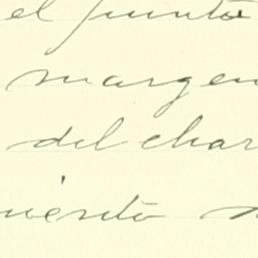 el punto
margen
del char
iento